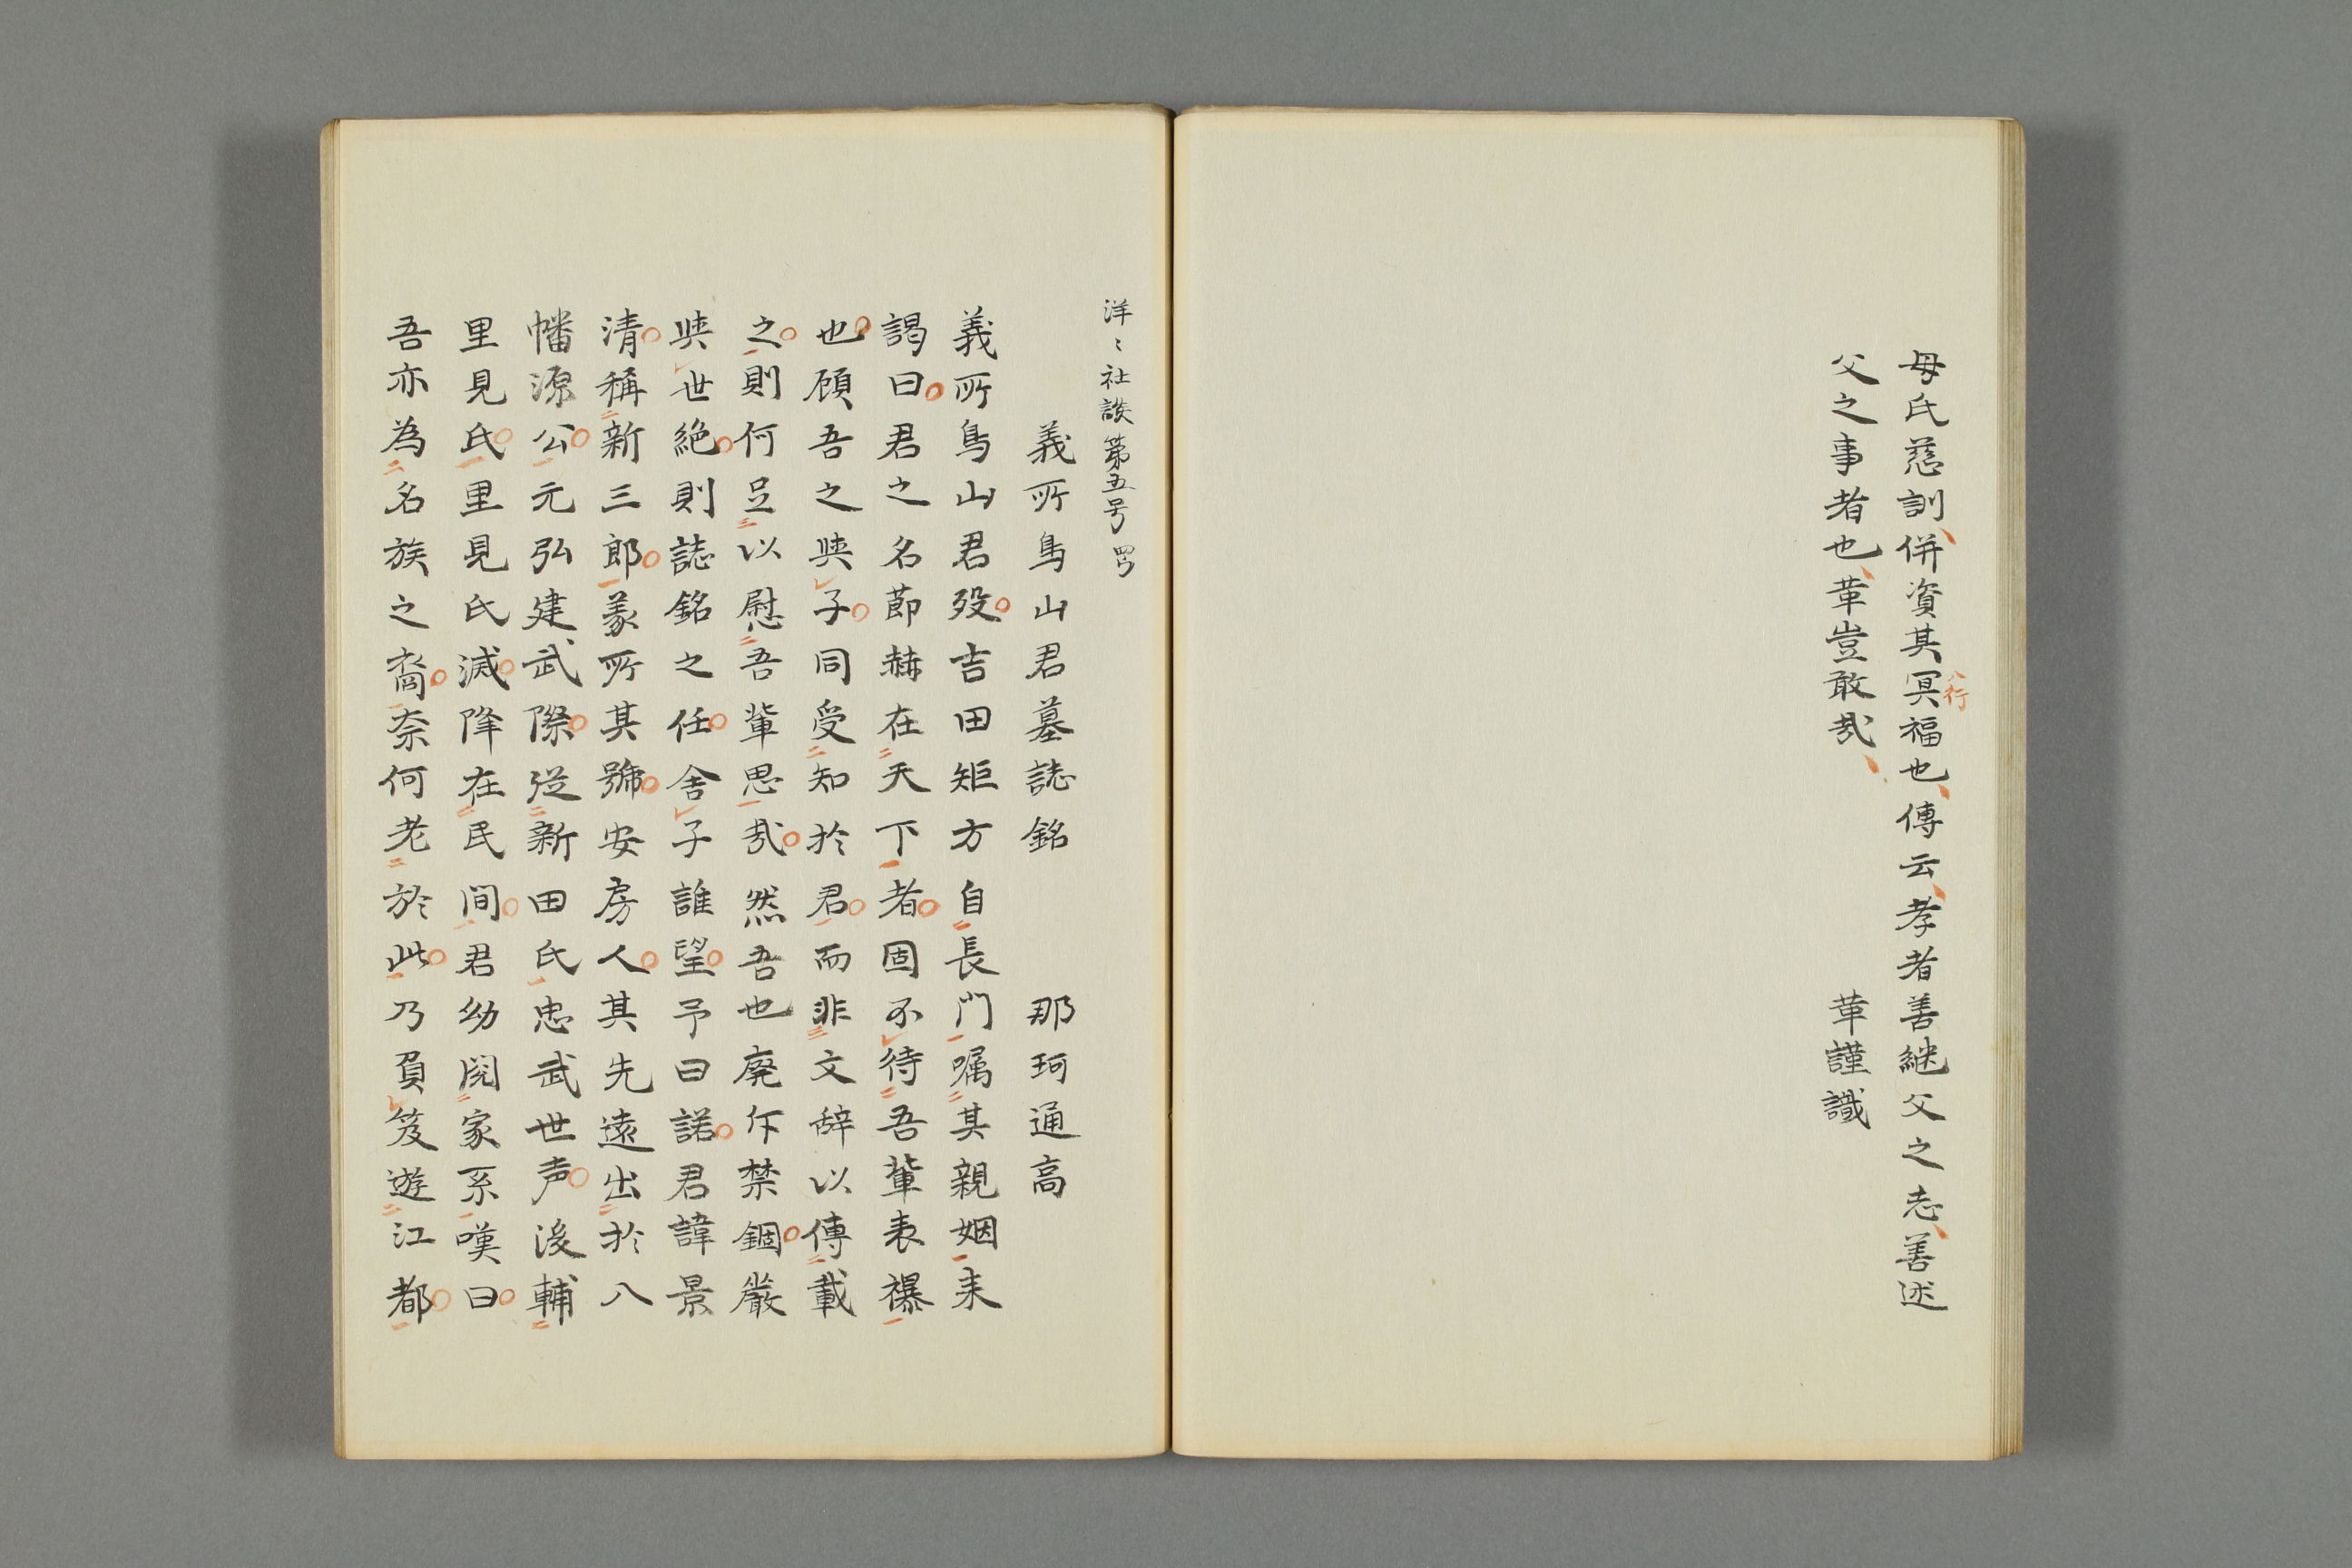 母氏慈訓、併資其冥福也、傳云、孝者善継父之志、善述
八行
父之事者也、華豈敢哉、 華謹識
洋〻社談第五号
義所鳥山君墓誌銘 那珂通高
義所鳥山君歿。吉田矩方自長門嘱其親姻来
謁曰。君之名節赫在天下者。固不待吾輩表襮
也。顧吾之與子。同受知於君。而非文辞以傳載
之。則何足以慰吾輩思哉。然吾也廃斥禁錮。嚴
與世絶。則誌銘之任。舎子誰望。予曰諾。君諱景
清。稱新三郎。義所其號。安房人。其先遠出於八
幡源公。元弘建武際。従新田氏忠武世声。後輔
里見氏。里見氏滅。降在民間。君幼閲家系嘆曰。
吾亦為名族之裔。奈何老於此。乃負笈遊江都。